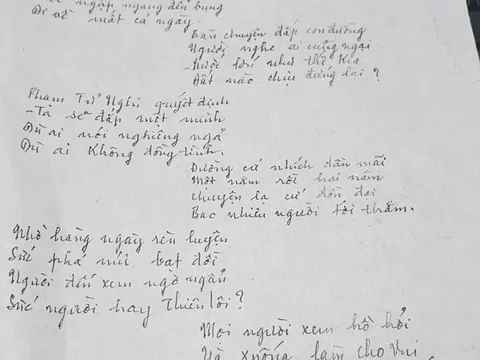 ngập ngang đến bụng
Đi về mất cả ngày.
Bàn chuyện đắp con đường
Người nghe ai cũng ngại
- Nước lớn như thế kia
Đất nào chịu đứng lại ?
Phạm Tử Nghi quyết định
- Ta sẽ đắp một mình
Dù ai nói nghiêng ngả
Dù ai không đồng tình.
Đường cứ nhích dần mãi
Một năm rồi hai năm
Chuyện lạ cứ đồn đại
Bao nhiêu người tới thăm.
Nhờ hàng ngày rèn luyện
Sức phá núi bạt đồi
Người đến xem ngờ ngẩn
Sức người hay Thiên lôi ?
Mọi người xem hồ hởi
Và xuống làm cho vui